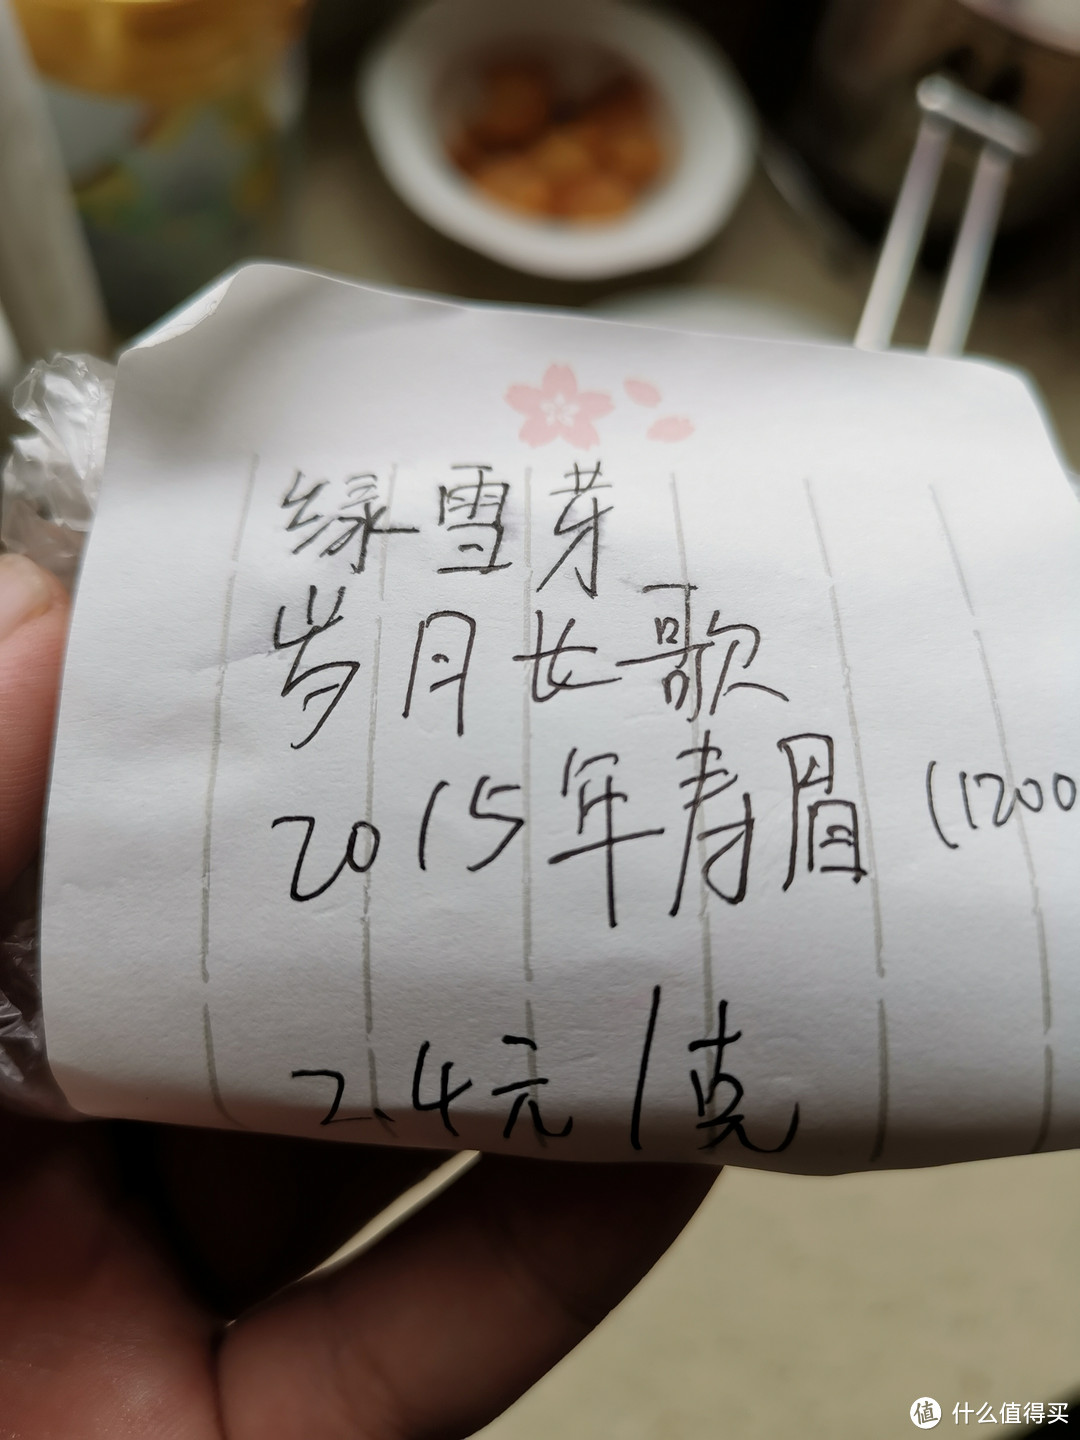 绿雪芽
岁月长歌
2015年寿眉 (1200
2.4元/克
值 什么值得买